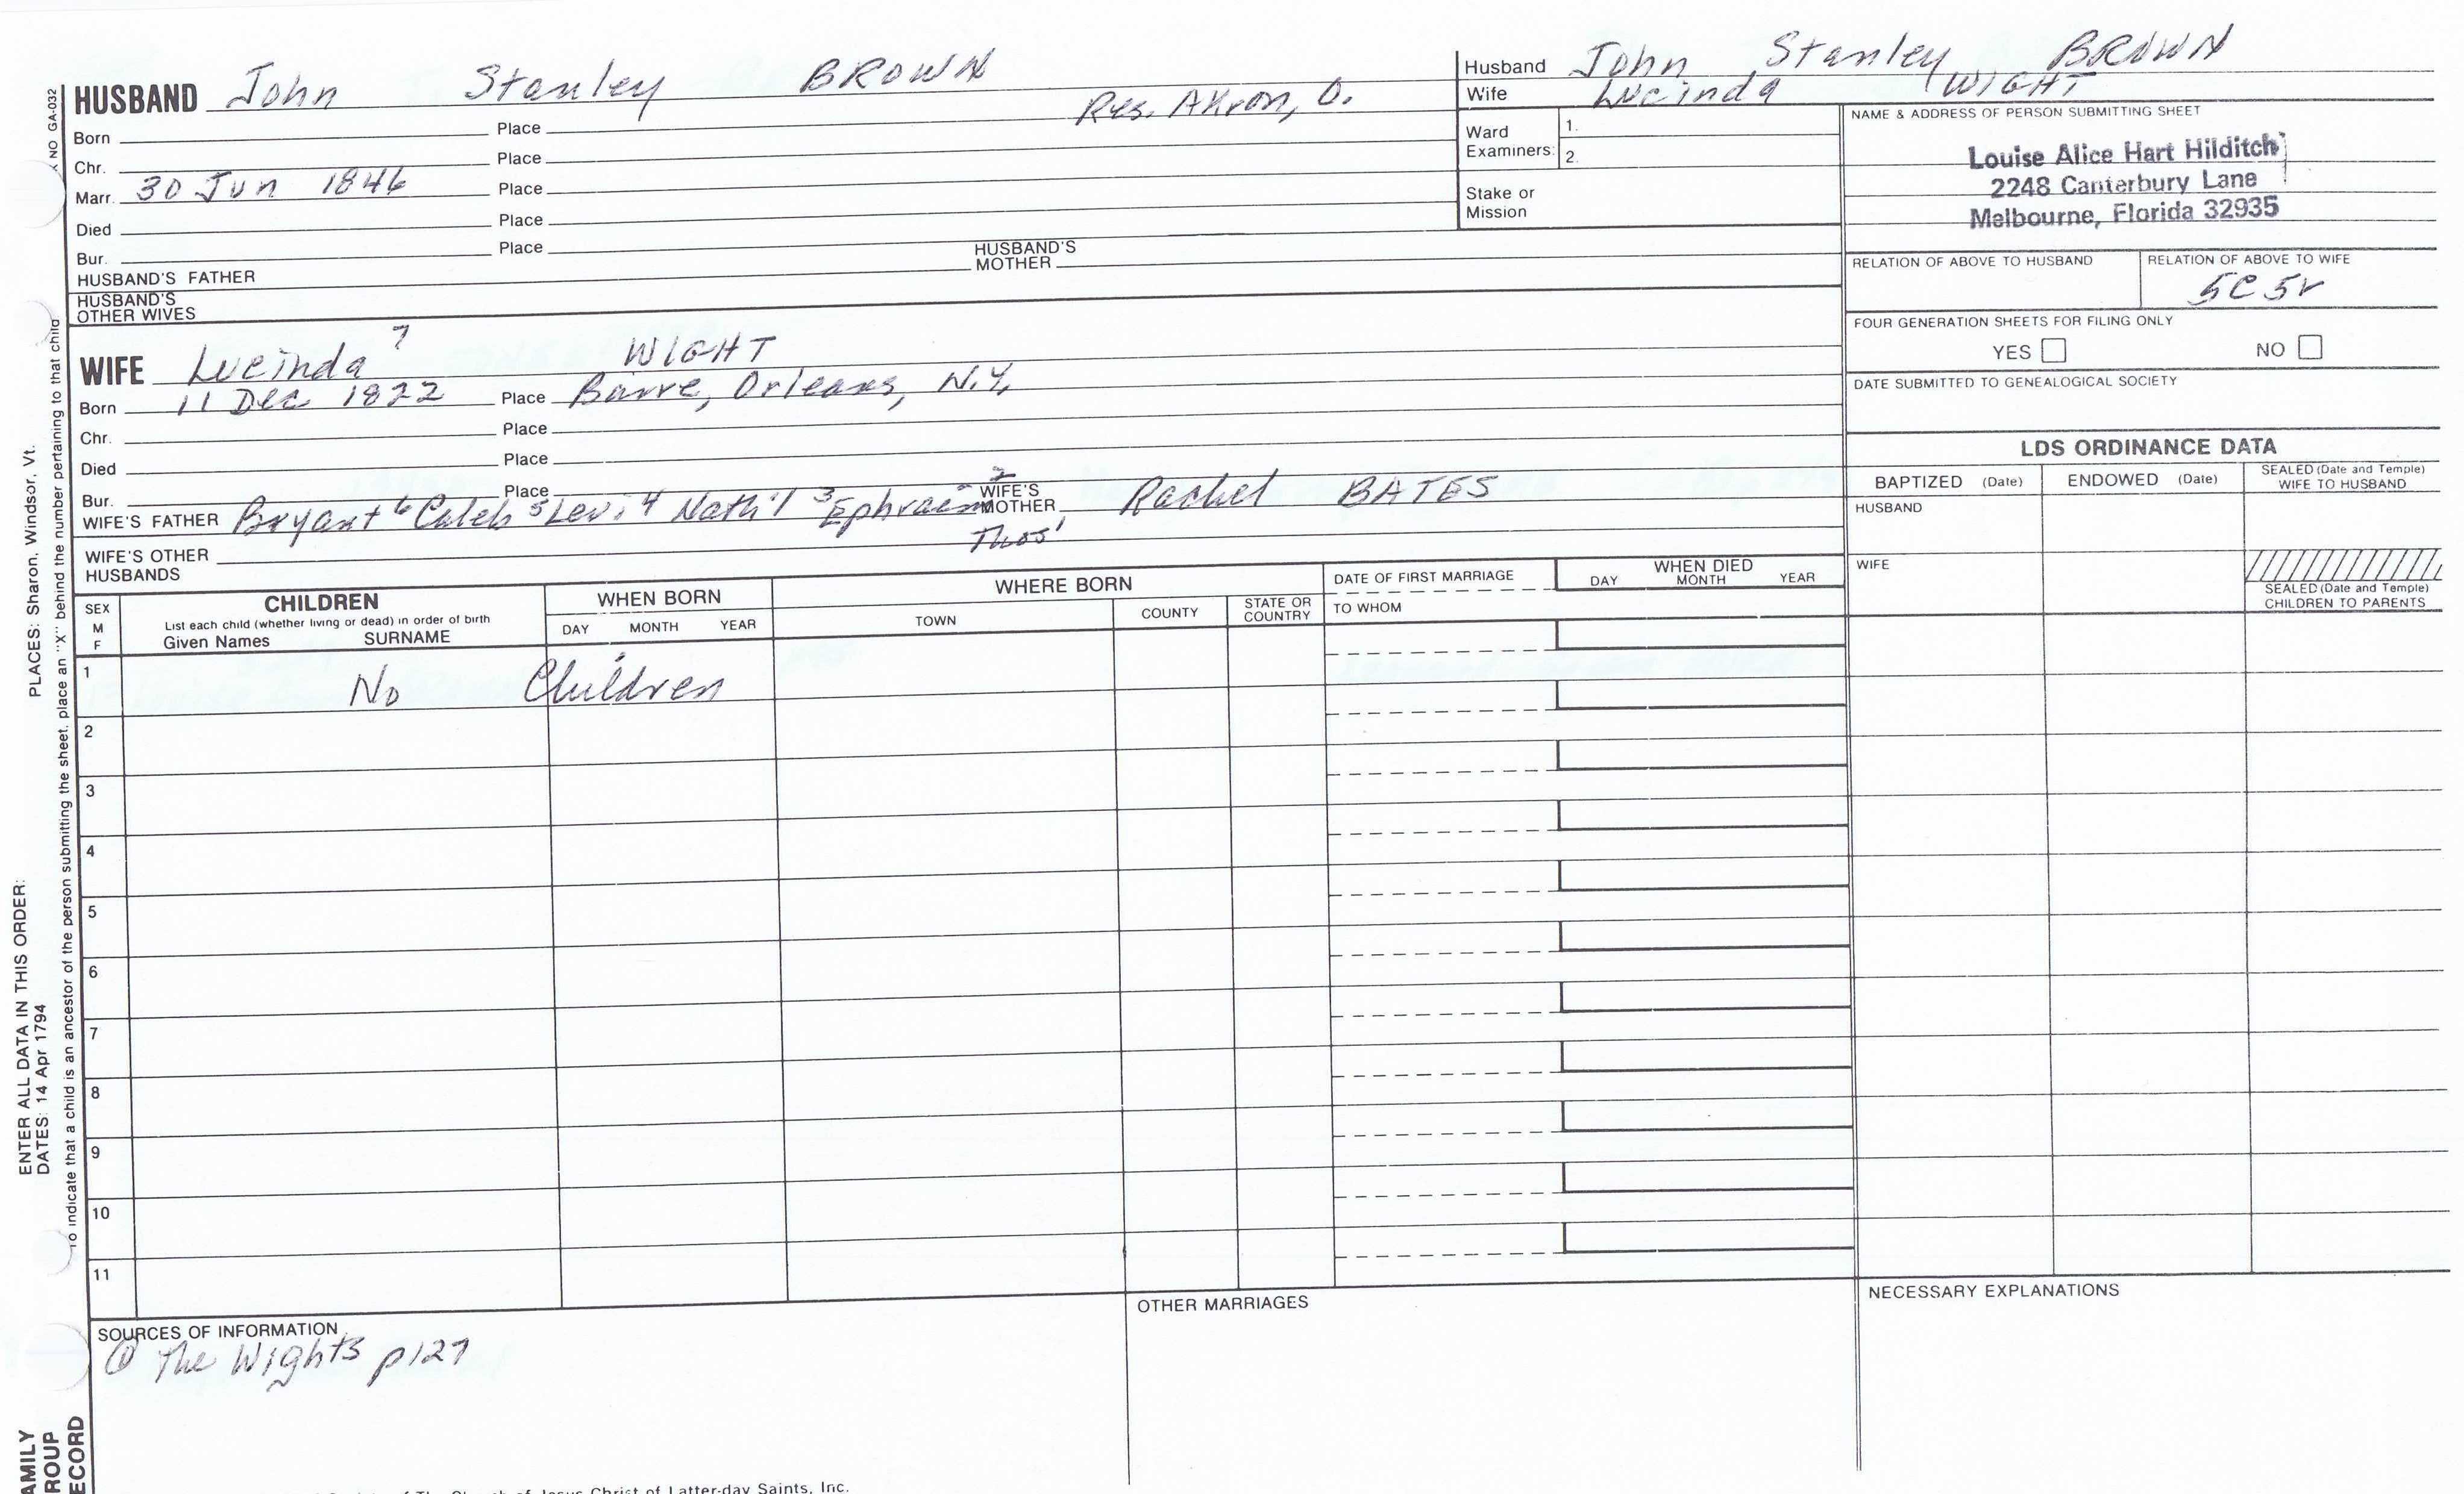 HUSBAND John Stanley BROWN
Res. Akron, O.
Born Place
Chr. Place
Marr. 30 Jun 1846 Place
Died Place
Bur. Place
HUSBAND'S FATHER HUSBAND'S MOTHER
HUSBAND'S OTHER WIVES
Husband John Stanley BROWN
Wife Lucinda WIGHT
Ward Examiners: 1.
2.
Stake or Mission
NAME & ADDRESS OF PERSON SUBMITTING SHEET
Louise Alice Hart Hilditch
2248 Canterbury Lane
Melbourne, Florida 32935
RELATION OF ABOVE TO HUSBAND RELATION OF ABOVE TO WIFE
5C5r
FOUR GENERATION SHEETS FOR FILING ONLY
YES NO
DATE SUBMITTED TO GENEALOGICAL SOCIETY
WIFE Lucinda 7 WIGHT
Born 11 Dec 1822 Place Barre, Orleans, N.Y.
Chr. Place
Died Place
Bur. Place
WIFE'S FATHER Bryant 6 Caleb 5 Levi 4 Nath'l 3 Ephraim 2 Thos 1 WIFE'S MOTHER Rachel BATES
WIFE'S OTHER HUSBANDS
LDS ORDINANCE DATA
BAPTIZED (Date) ENDOWED (Date) SEALED (Date and Temple) WIFE TO HUSBAND
HUSBAND
WIFE
SEALED (Date and Temple) CHILDREN TO PARENTS
SEX M F
CHILDREN
List each child (whether living or dead) in order of birth
Given Names SURNAME
WHEN BORN
DAY MONTH YEAR
WHERE BORN
TOWN COUNTY STATE OR COUNTRY
DATE OF FIRST MARRIAGE
TO WHOM
WHEN DIED
DAY MONTH YEAR
1 No Children
2
3
4
5
6
7
8
9
10
11
SOURCES OF INFORMATION
① The Wights p127
OTHER MARRIAGES
NECESSARY EXPLANATIONS
NO GA-032
PLACES: Sharon, Windsor, Vt.
ENTER ALL DATA IN THIS ORDER:
DATES: 14 Apr 1794
To indicate that a child is an ancestor of the person submitting the sheet, place an "X" behind the number pertaining to that child
AMILY
ROUP
ECORD
of The Church of Jesus Christ of Latter-day Saints, Inc.